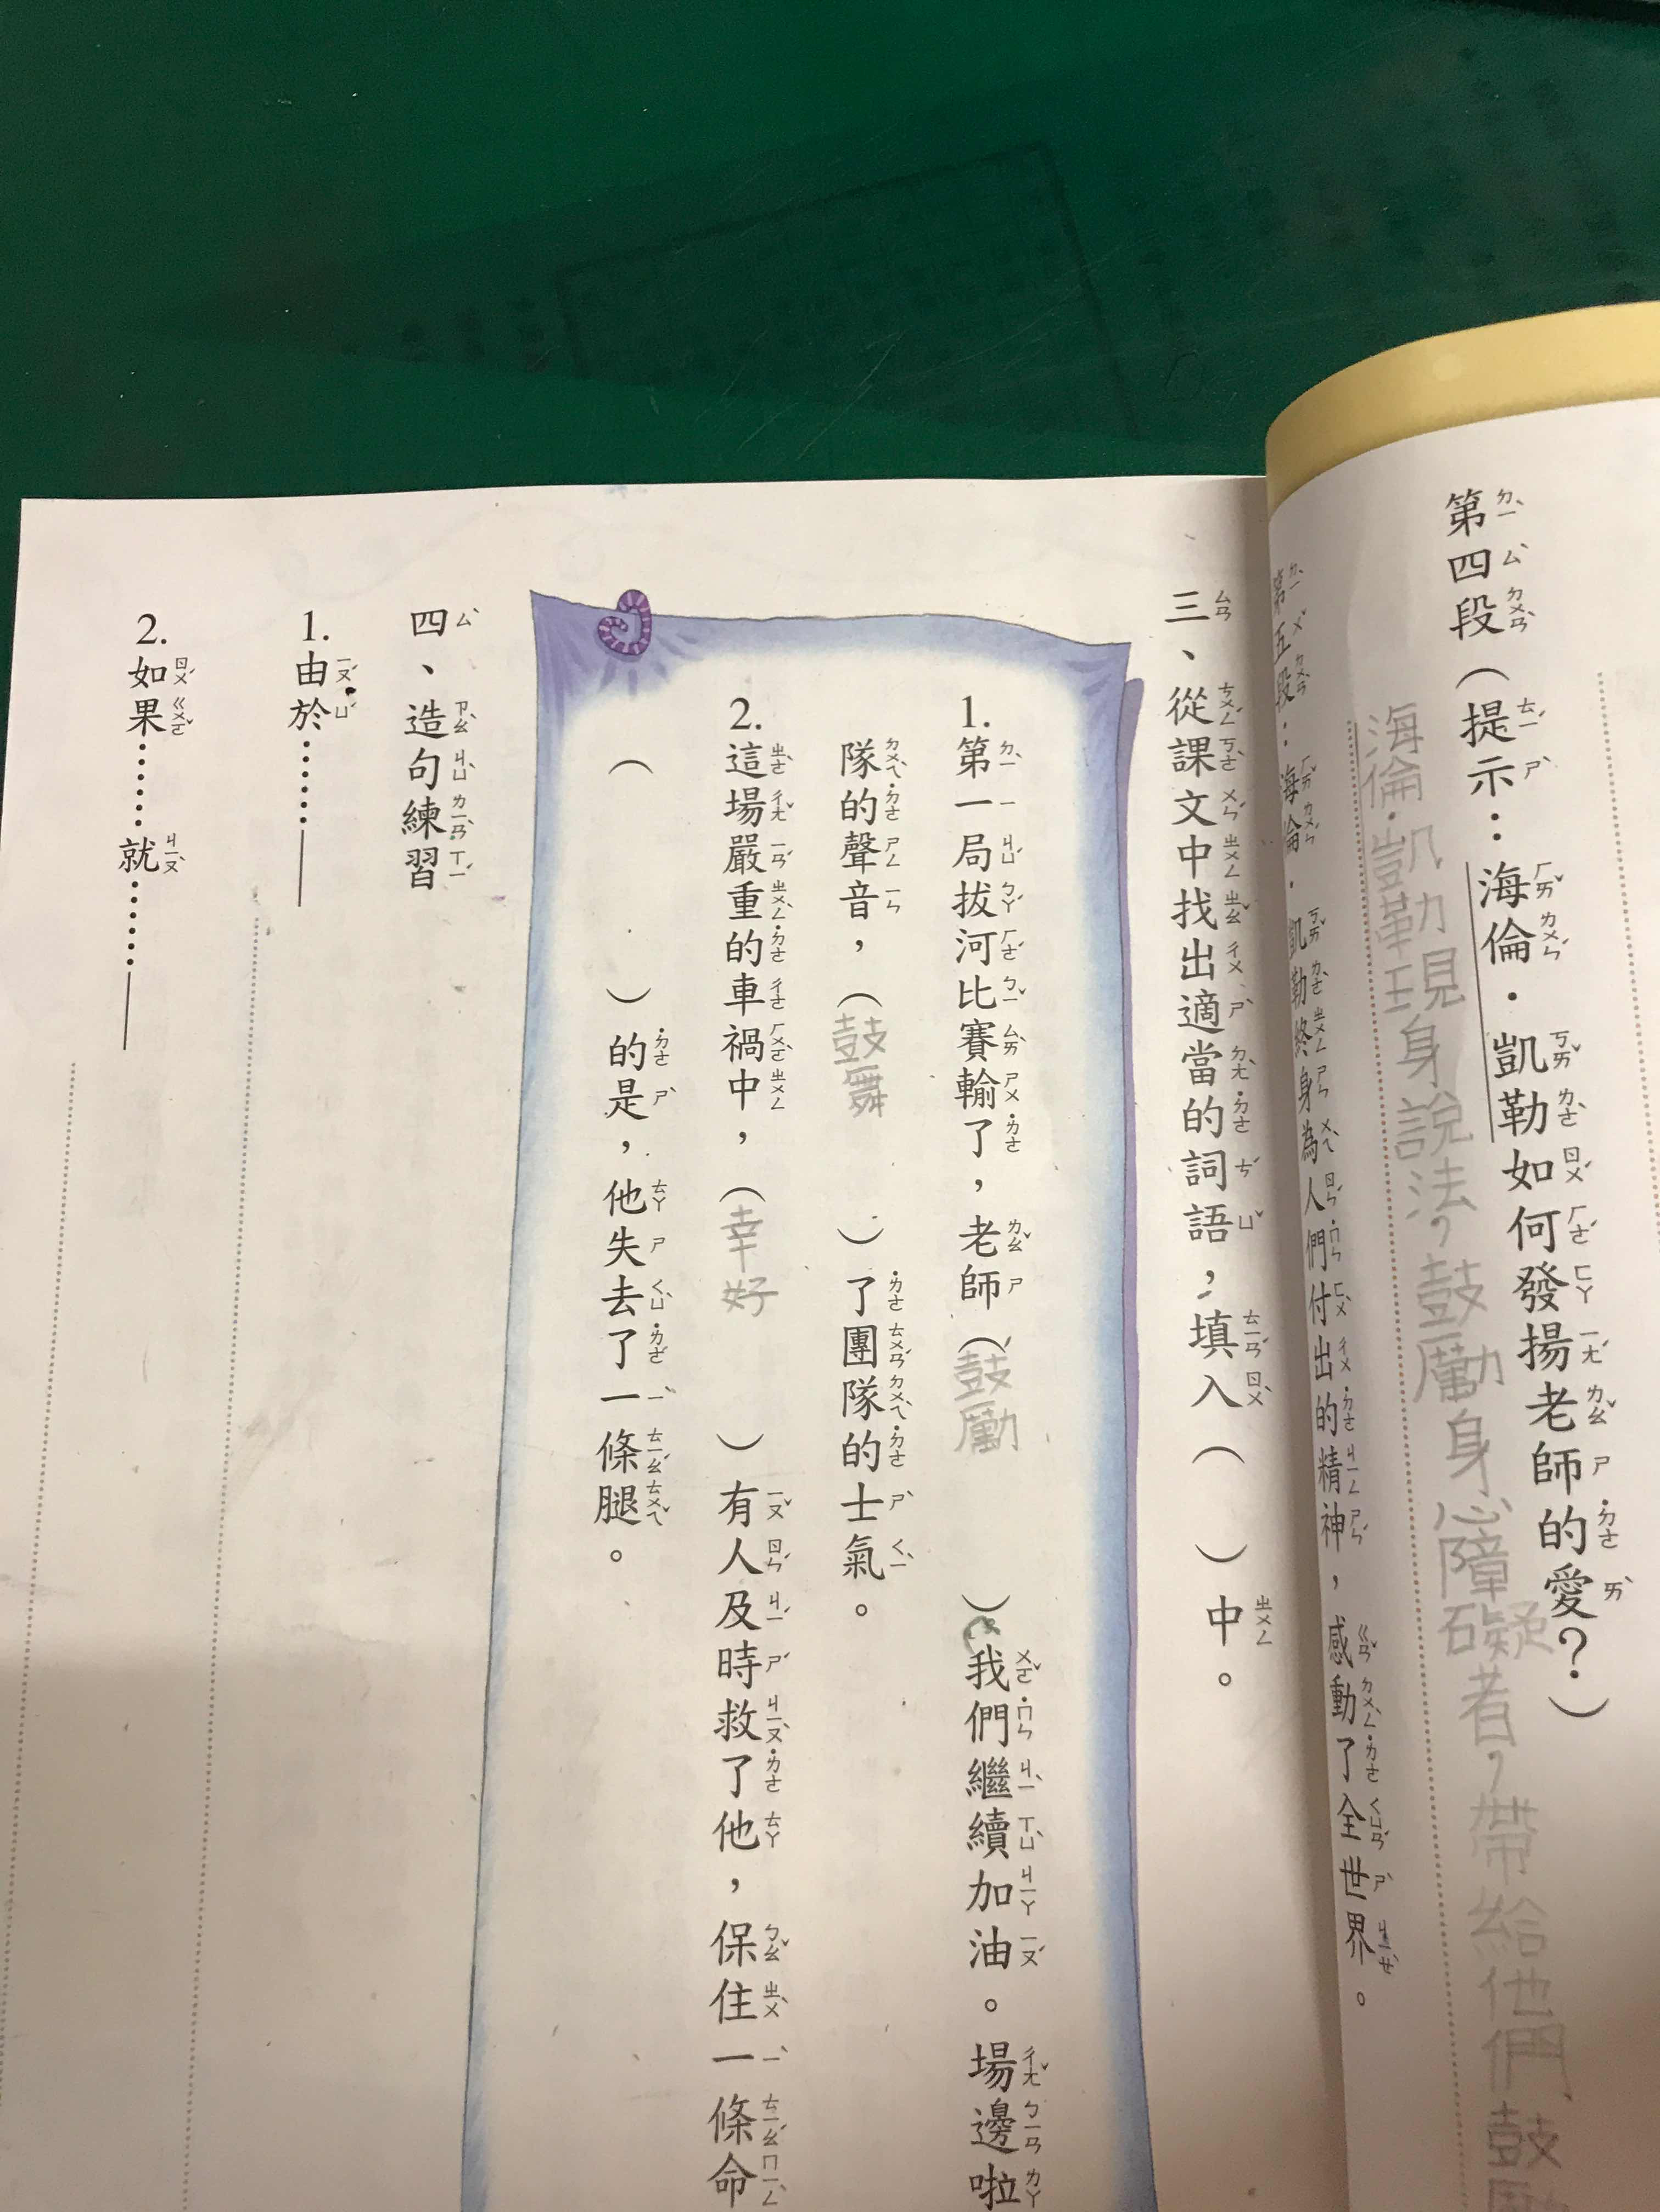 第四段（提示：海倫．凱勒如何發揚老師的愛？）
海倫．凱勒現身說法，鼓勵身心障礙者，帶給他們鼓
第五段：海倫．凱勒終身為人們付出的精神，感動了全世界。
三、從課文中找出適當的詞語，填入（　）中。
1.第一局拔河比賽輸了，老師（鼓勵）我們繼續加油。場邊啦
隊的聲音，（鼓舞）了團隊的士氣。
2.這場嚴重的車禍中，（幸好）有人及時救了他，保住一條命
（　）的是，他失去了一條腿。
四、造句練習
1.由於……
2.如果……就……